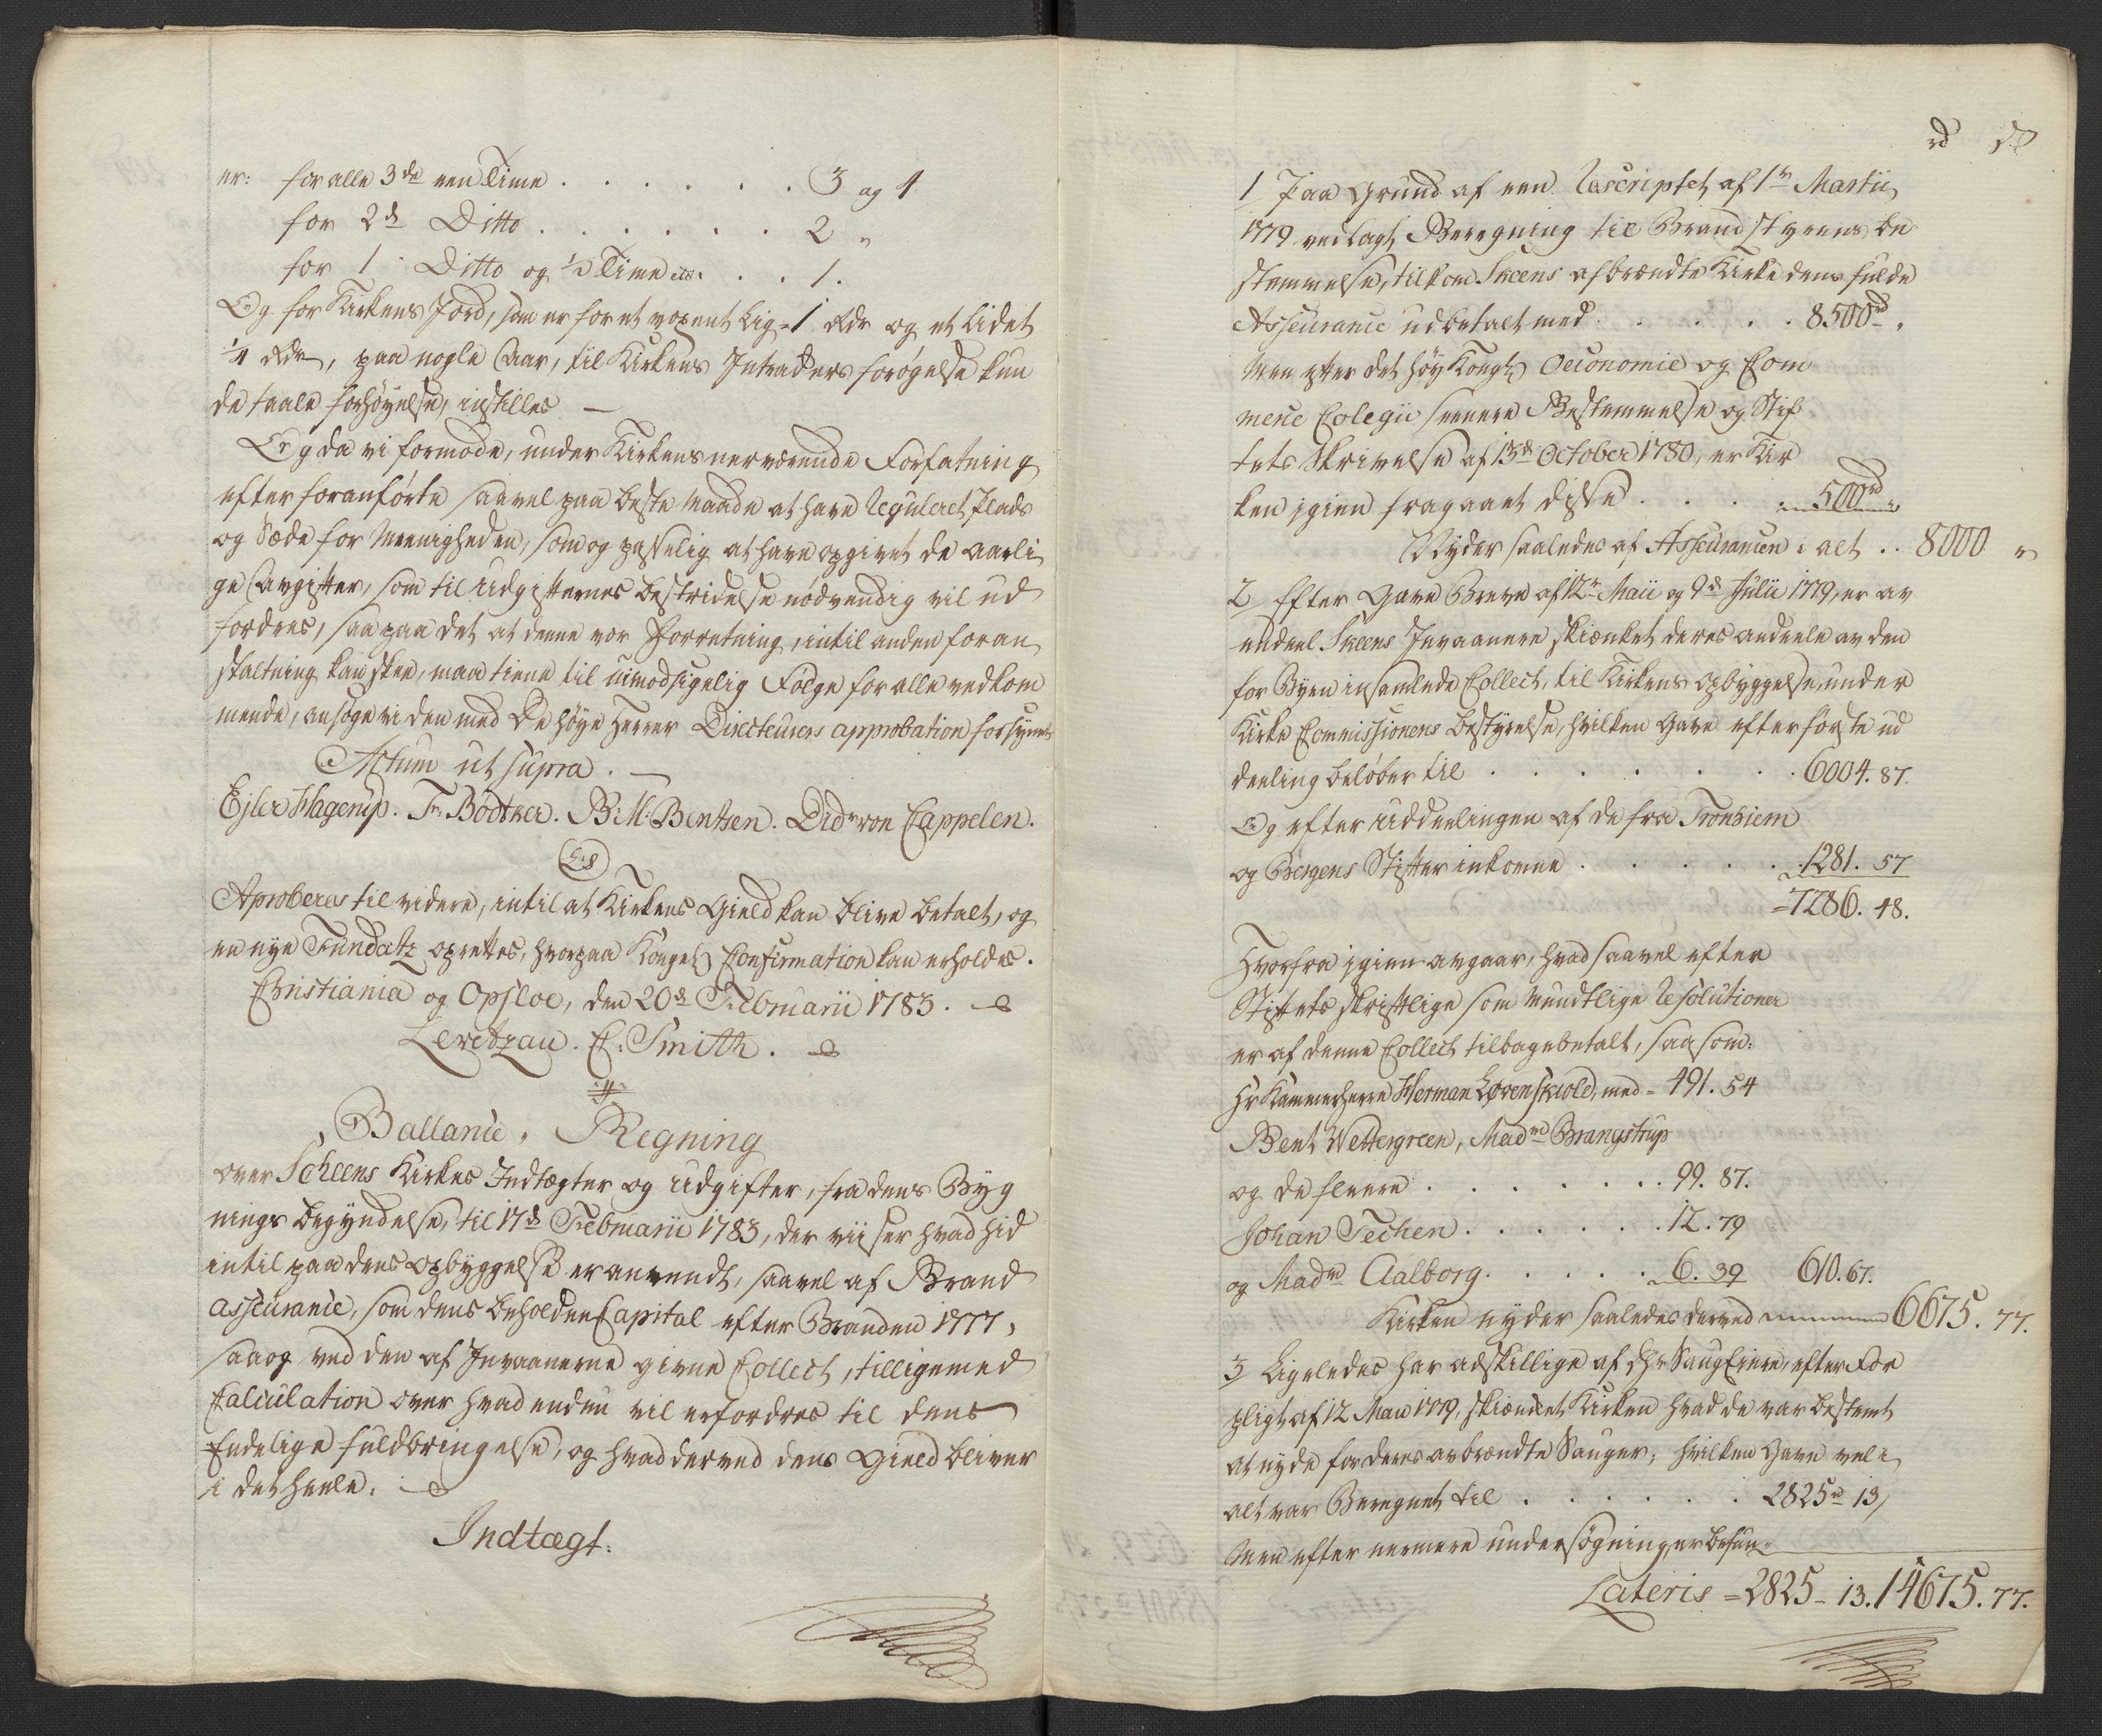 er: for alle 3de een Time . . . . . . 3 ag 4
for 2d Ditto . . . . . . 2 "
for 1 Ditto og ½ Time etc. . . . 1.
Og for Kirkens Jord, som er for et voxent Lig = 1 Rdr og et lidet
¼ Rdr, paa nogle Aar, til Kirkens Intraders forøgelse kun
de taale forhøyelse, instilles —
Og da vi formode, under Kirkens nerværende Forfatning
efter foranførte saavel paa beste Maade at have Reguleret Plads
og Sæde for Menigheden, som og passelig at have opgivet de aarli
ge Avgifter, som til Udgifternes bestridelse nødvendig vil ud
fordres, saa paa det at denne vor Forretning, intil anden foran
staltning kan skee, maa tiene til uimodsigelig Følge for alle vedkom
mende, ansøge vi den med De høye Herrer Directeurers approbation forsynet
Actum ut supra. —
Ejler Hagerup. Fr: Bødtker. B: M: Bentsen. Did: von Cappelen.
L:S
Aproberes til videre, intil at Kirkens Gield kan blive betalt, og
en nye Fundatz oprettes, hvorpaa Kongel: Confirmation kan erholdes.
Christiania og Opsloe, den 20d Februarii 1783.
Levetzau. C: Smith.
Ballance, Regning
over Scheens Kirkes Indtægter og Udgifter, fra dens Byg
nings begyndelse, til 17d Februarii 1783, der viiser hvad hid
intil paa dens opbyggelse er anvendt, saavel af Brand
assecurance, som dens beholden Capital efter Branden 1777,
saa og ved den af Invaanerne givne Collect, tilligemed
Calculation over hvad endnu vil erfordres til dens
Endelige fuldbringelse, og hvad derved dens Gield bliver
i det heele.
Indtægt.
rd s
1 Paa Grund af een Rescriptet af 1n Martii
1779 vedlagt Beregning til Brandstyrens be
stemmelse, tilkom Skeens afbrændte Kirke dens fulde
Assurance udbetalt med . . . . . 8500rd.
Men efter det høy Kongl: Oeconomie og Com
merce Colegii seenere Bestemmelse og Stif
tets Skrivelse af 13d October 1780, er Kir
ken igien fragaaet disse . . . . . 500rd "
Nyder saaledes af Assurancen i alt .. 8000 "
2 Efter Gave Breve af 12n Maii og 9d Julii 1779, er av
endeel Skeens Invaanere skienket deres andeele av den
for Byen insamlede Collect, til Kirkens opbyggelse, under
Kirke Commissionens bestyrelse, hvilken Gave efter første ud
deeling beløber til . . . . . . . 6004. 87.
Og efter Uddeelingen af de fra Tronhiem
og Bergens Stifter inkomne . . . . . 1281. 57
= 7286. 48.
Hvorfra igien avgaar, hvad saavel efter
Stiftets skriftlige som Mundtlige Resolutioner
er af denne Collect tilbagebetalt, saasom:
Hr Kammerherre Herman Løvenskiold, med = 491. 54
Bent Wettergreen, Madme Brangstrup
og de fleere . . . . . . . 99. 87.
Johan Techen . . . . . . 12. 79
og Madme Aalborg. . . . . . 6. 39 610. 67.
Kirken nyder saaledes derved 6675. 77.
3 Ligeledes har adskillige af dhr Saug Eiere, efter For
pligt af 12 Maii 1779, skiendet Kirken hvad de var bestemt
at nyde for deres avbrændte Sauger, hvilken Gave vel i
alt var Beregnet til . . . . . . 2825rd 13,
Men efter nermere undersøgning er befun=
Lateris = 2825 - 13. 14675. 77.